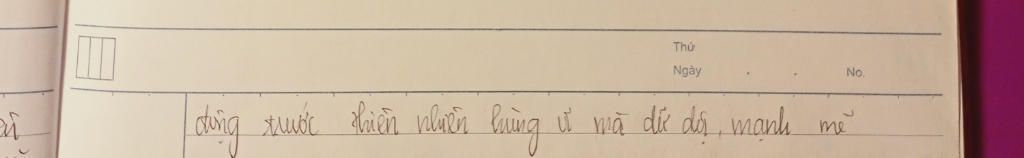 Thứ
Ngày . . No.
đứng trước thiên nhiên hùng vĩ mà dữ dội, mạnh mẽ